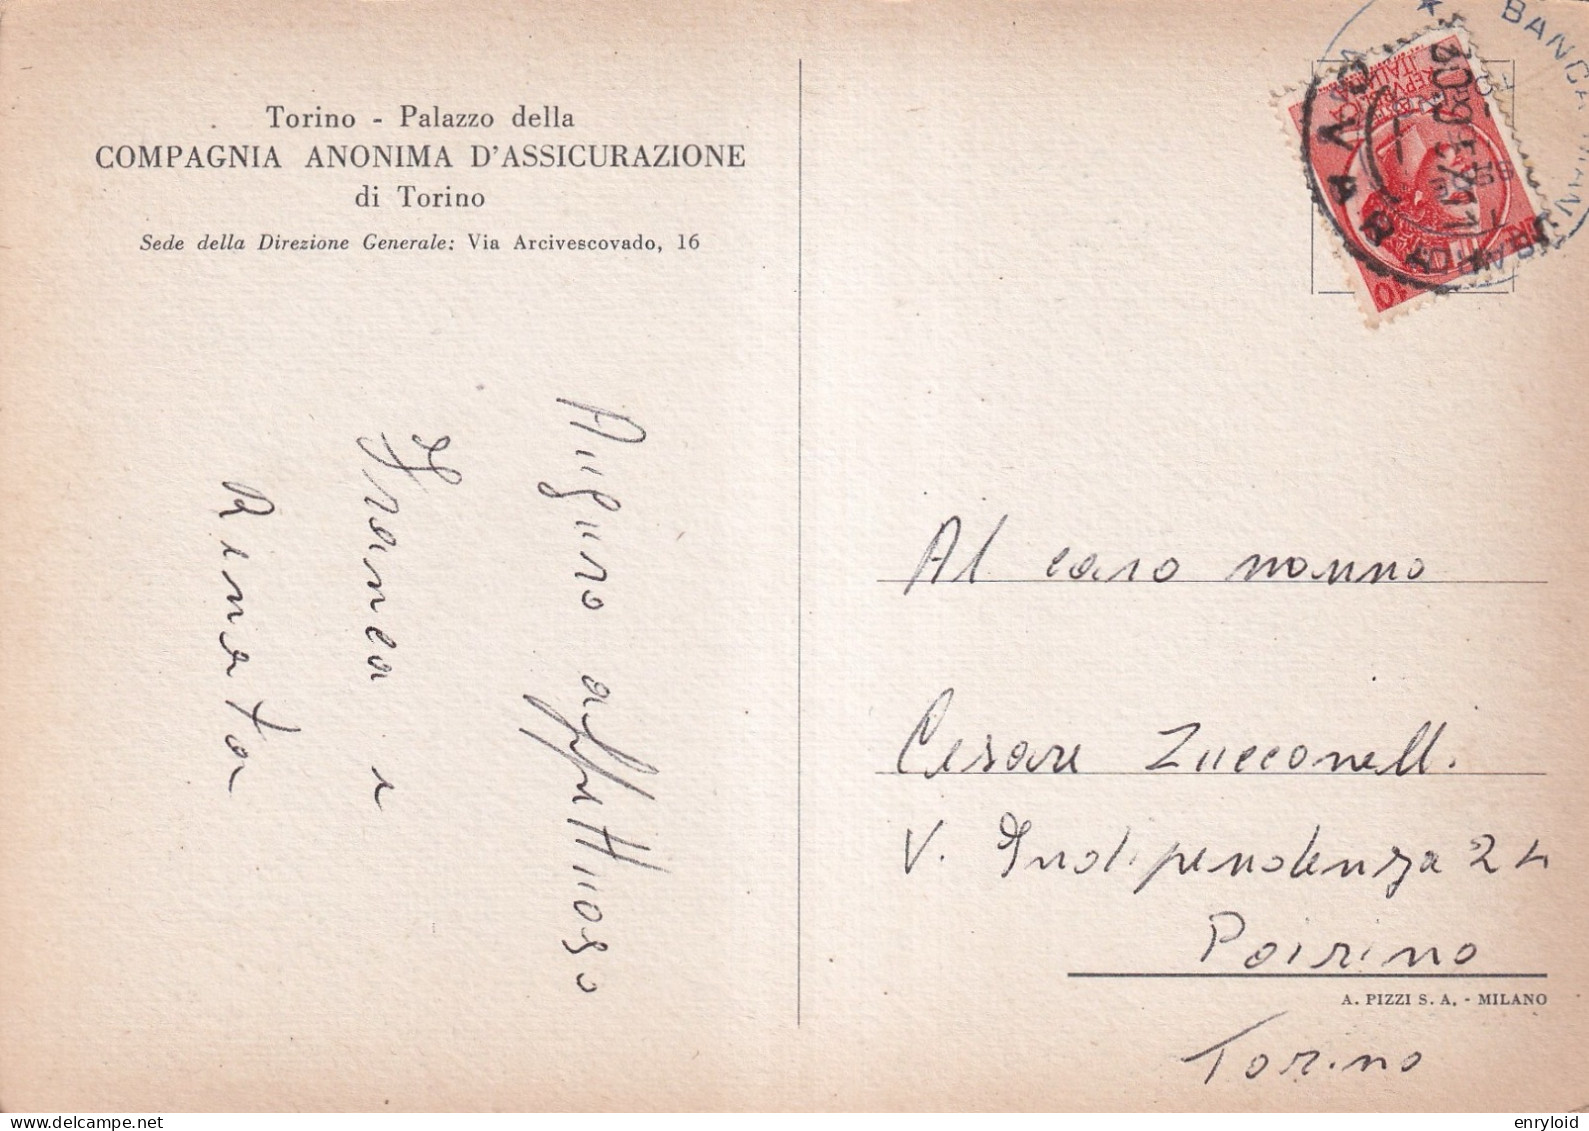 Torino - Palazzo della
COMPAGNIA ANONIMA D'ASSICURAZIONE
di Torino
Sede della Direzione Generale: Via Arcivescovado, 16
Auguro affettuoso
Franca e
Renata
BANCA
REPVBBLICA
ITALIANA
10
Al caro nonno
Cesare Zucconelli.
V. Indipendenza 24
Poirino
A. PIZZI S. A. - MILANO
Torino
enryloid